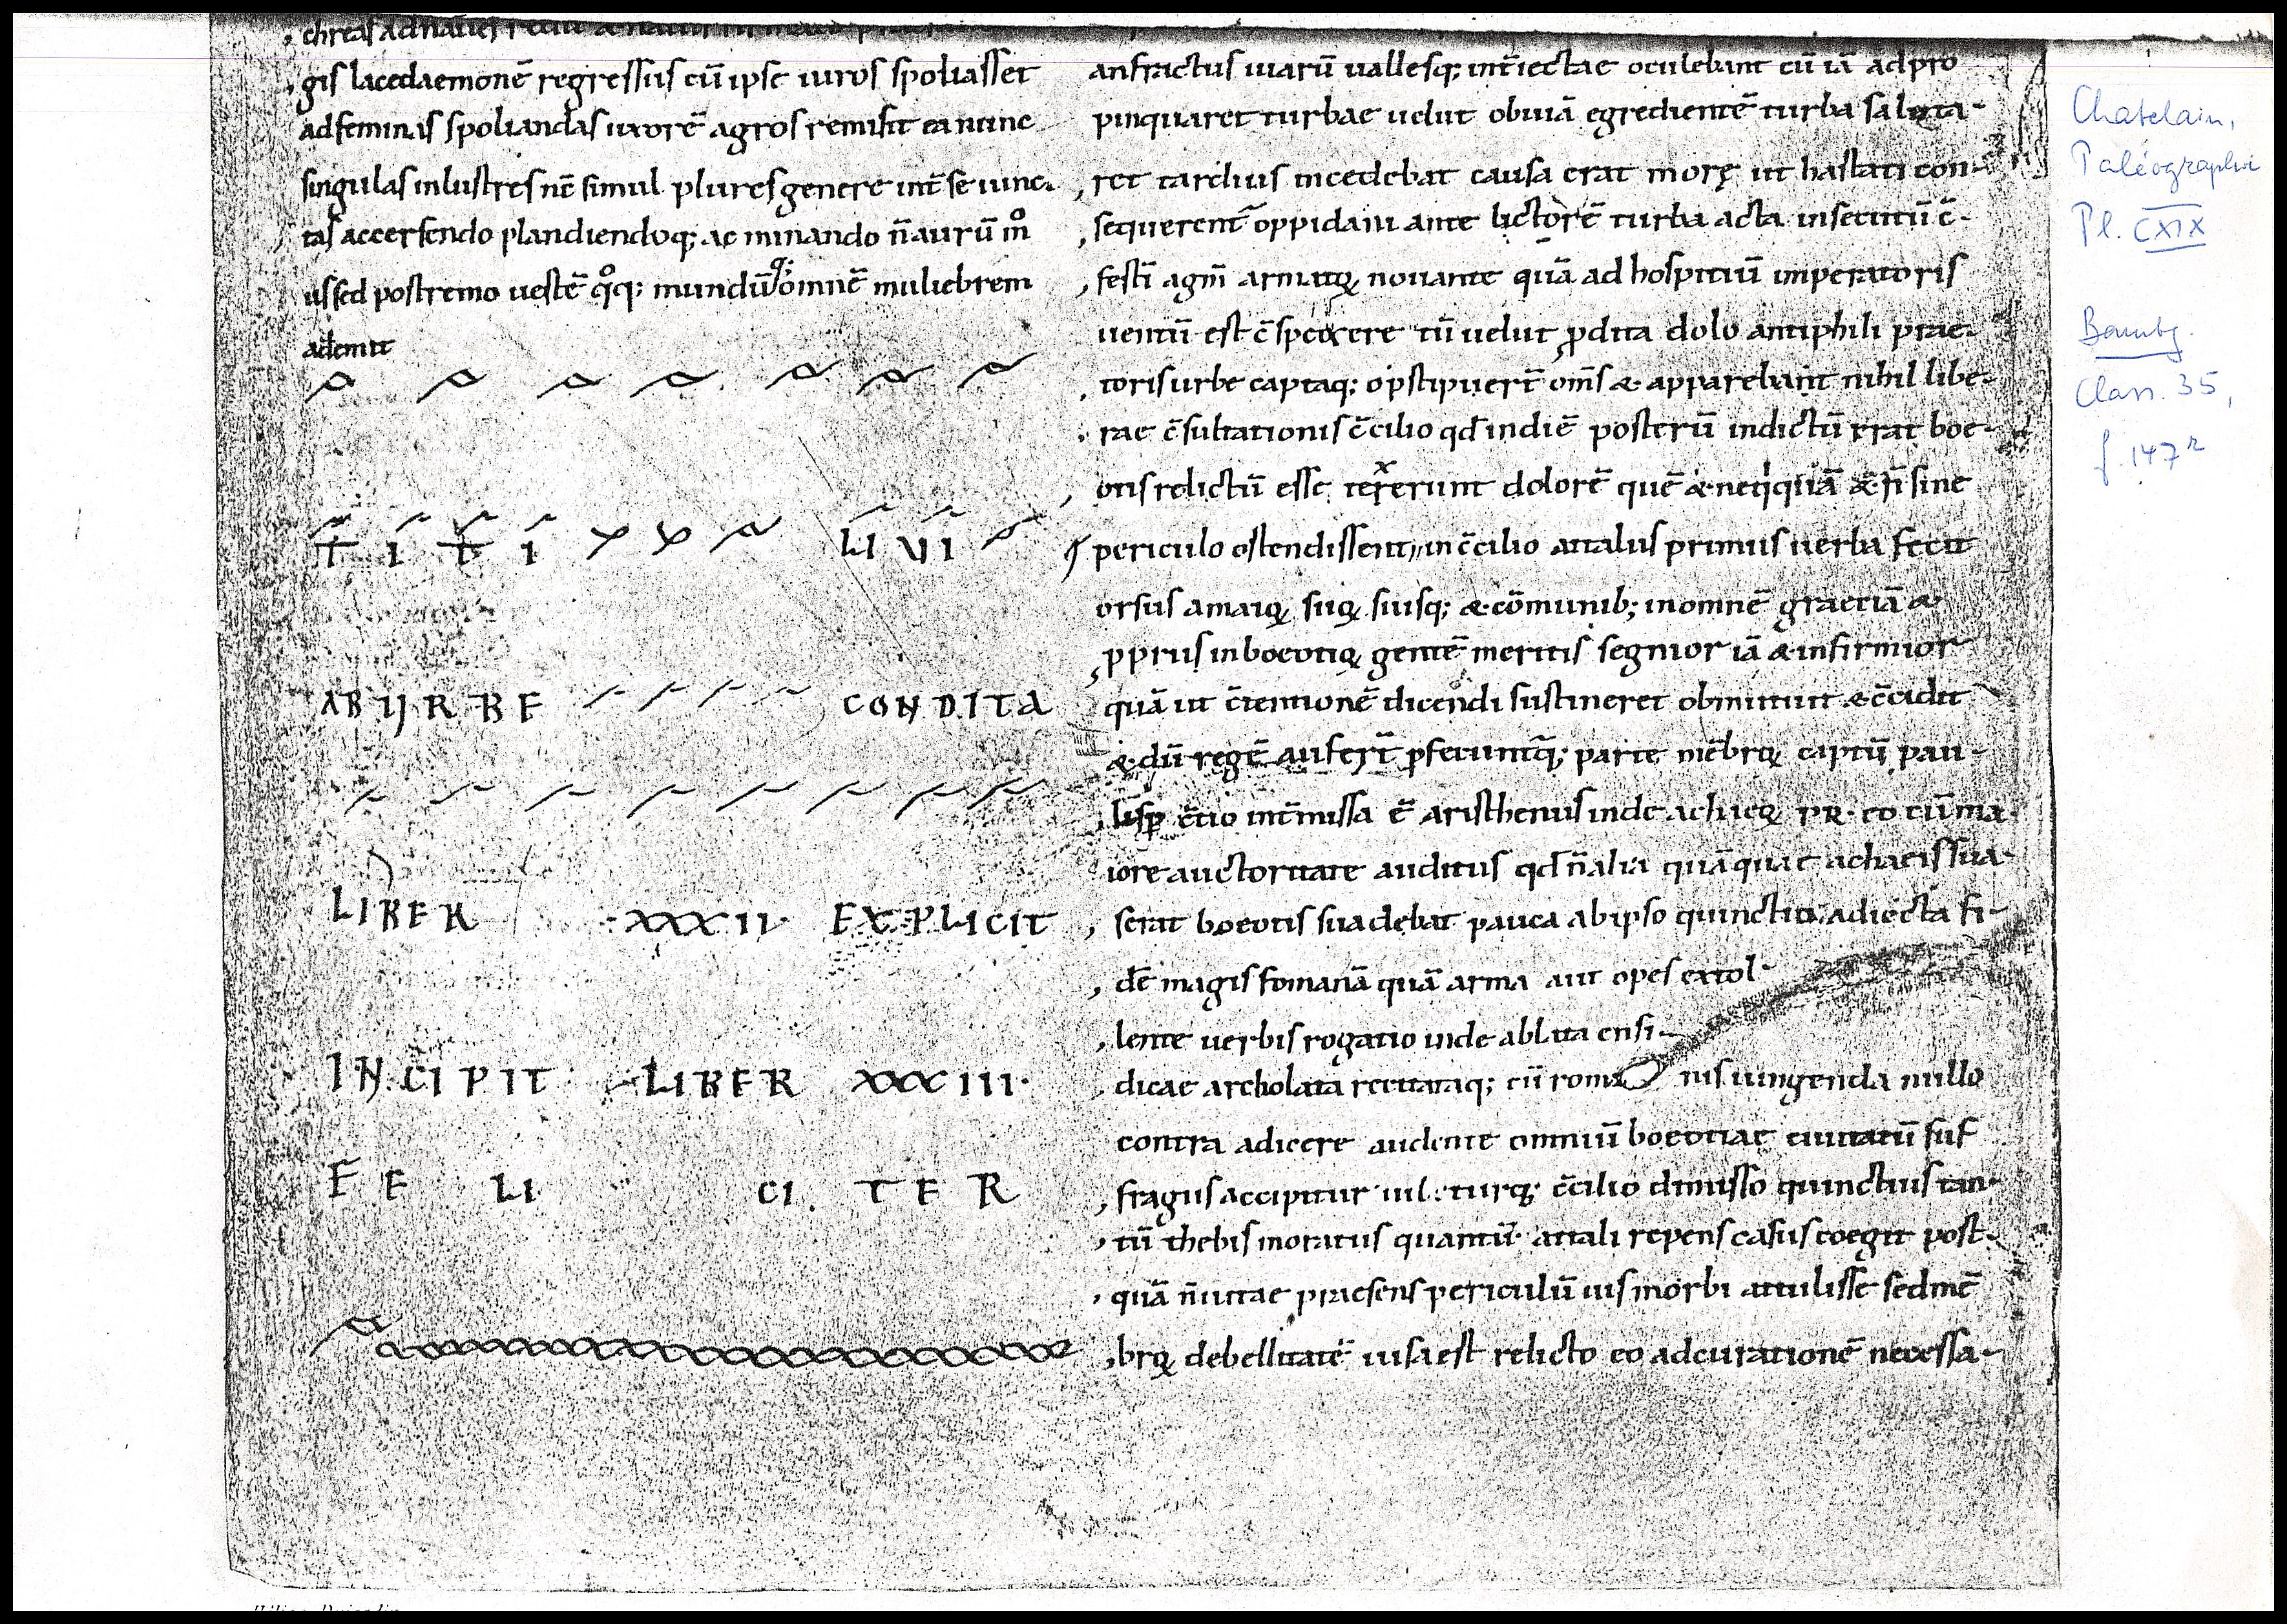 gis lacedaemonē regressus cū ipse uiros spoliasset
ad feminas spoliandas uxorē agros remisit ea nunc
singulas inlustres nc̄ simul plures genere int̄ se iunc
tas accersendo plandiendoq; ac minando n̄ aurū m̊
us sed postremo uestē q̊q; mundūq; omnē muliebrem
ademit
TITI LIVI
AB URBE CONDITA
LIBER ·XXXII· EXPLICIT
INCIPIT LIBER XXXIII·
FE LI CI TER
anfractus uiarū uallesq; int̄iectae oculebant cū iā adpro
pinquaret turbae uelut obuiā egredientē turba saluta-
ret tardius incedebat causa erat morę ut hastati con-
sequerent̄ oppidani ante lictorē turba acta insecutū c̄-
festī agm̄ armatoꝝ nouante quā ad hospitiū imperatoris
uentū est c̄spexere tū uelut ꝓdita dolo antiphili prae-
toris urbe captaq; opstipuert̄ om̄s & apparebant nihil libe-
rae c̄sultationis c̄cilio qd̄ in diē posterū indictū erat boe-
otis relictū esse texerunt dolorē quē & neq̇quā & n̄ sine
periculo ostendissent in c̄cilio attalus primus uerba fecit
orsus a maioꝝ suoꝝ suisq; & cōmunib; in omnē graeciā &
ꝓpriis in boeotioꝝ gentē meritis segnior iā & infirmior
quā ut c̄tentionē dicendi sustineret obmutuit & c̄cidit
& dū regē aufert̄ pferuntq; parte mēbroꝝ captū pau-
lisp c̄tio int̄missa ē aristhenus inde achaeoꝝ PR· eo cū ma-
iore auctoritate auditus qd̄ n̄ alia quā quae achaeis sua-
serat boeotis suadebat pauca ab ipso quinctio adiecta fi-
dē magis romanā quā arma aut opes extol-
lente uerbis rogatio inde ablata ensi-
dicae archolata recitataq; cū roma nis iungenda nullo
contra adicere audente omniū boeotiae ciuitatū suf
fragiis accipitur iubeturq; c̄cilio dimisso quinctius tan-
tū thebis moratus quantū attali repens casus coegit post
quā n̄ uitae praesens periculū uis morbi attulisse sed mē
broꝝ debelitatē uisa est relicto eo ad curationē necessa-
Chatelain,
Paléographie
Pl. CXIX
Bambg.
Class. 35,
f. 147ʳ